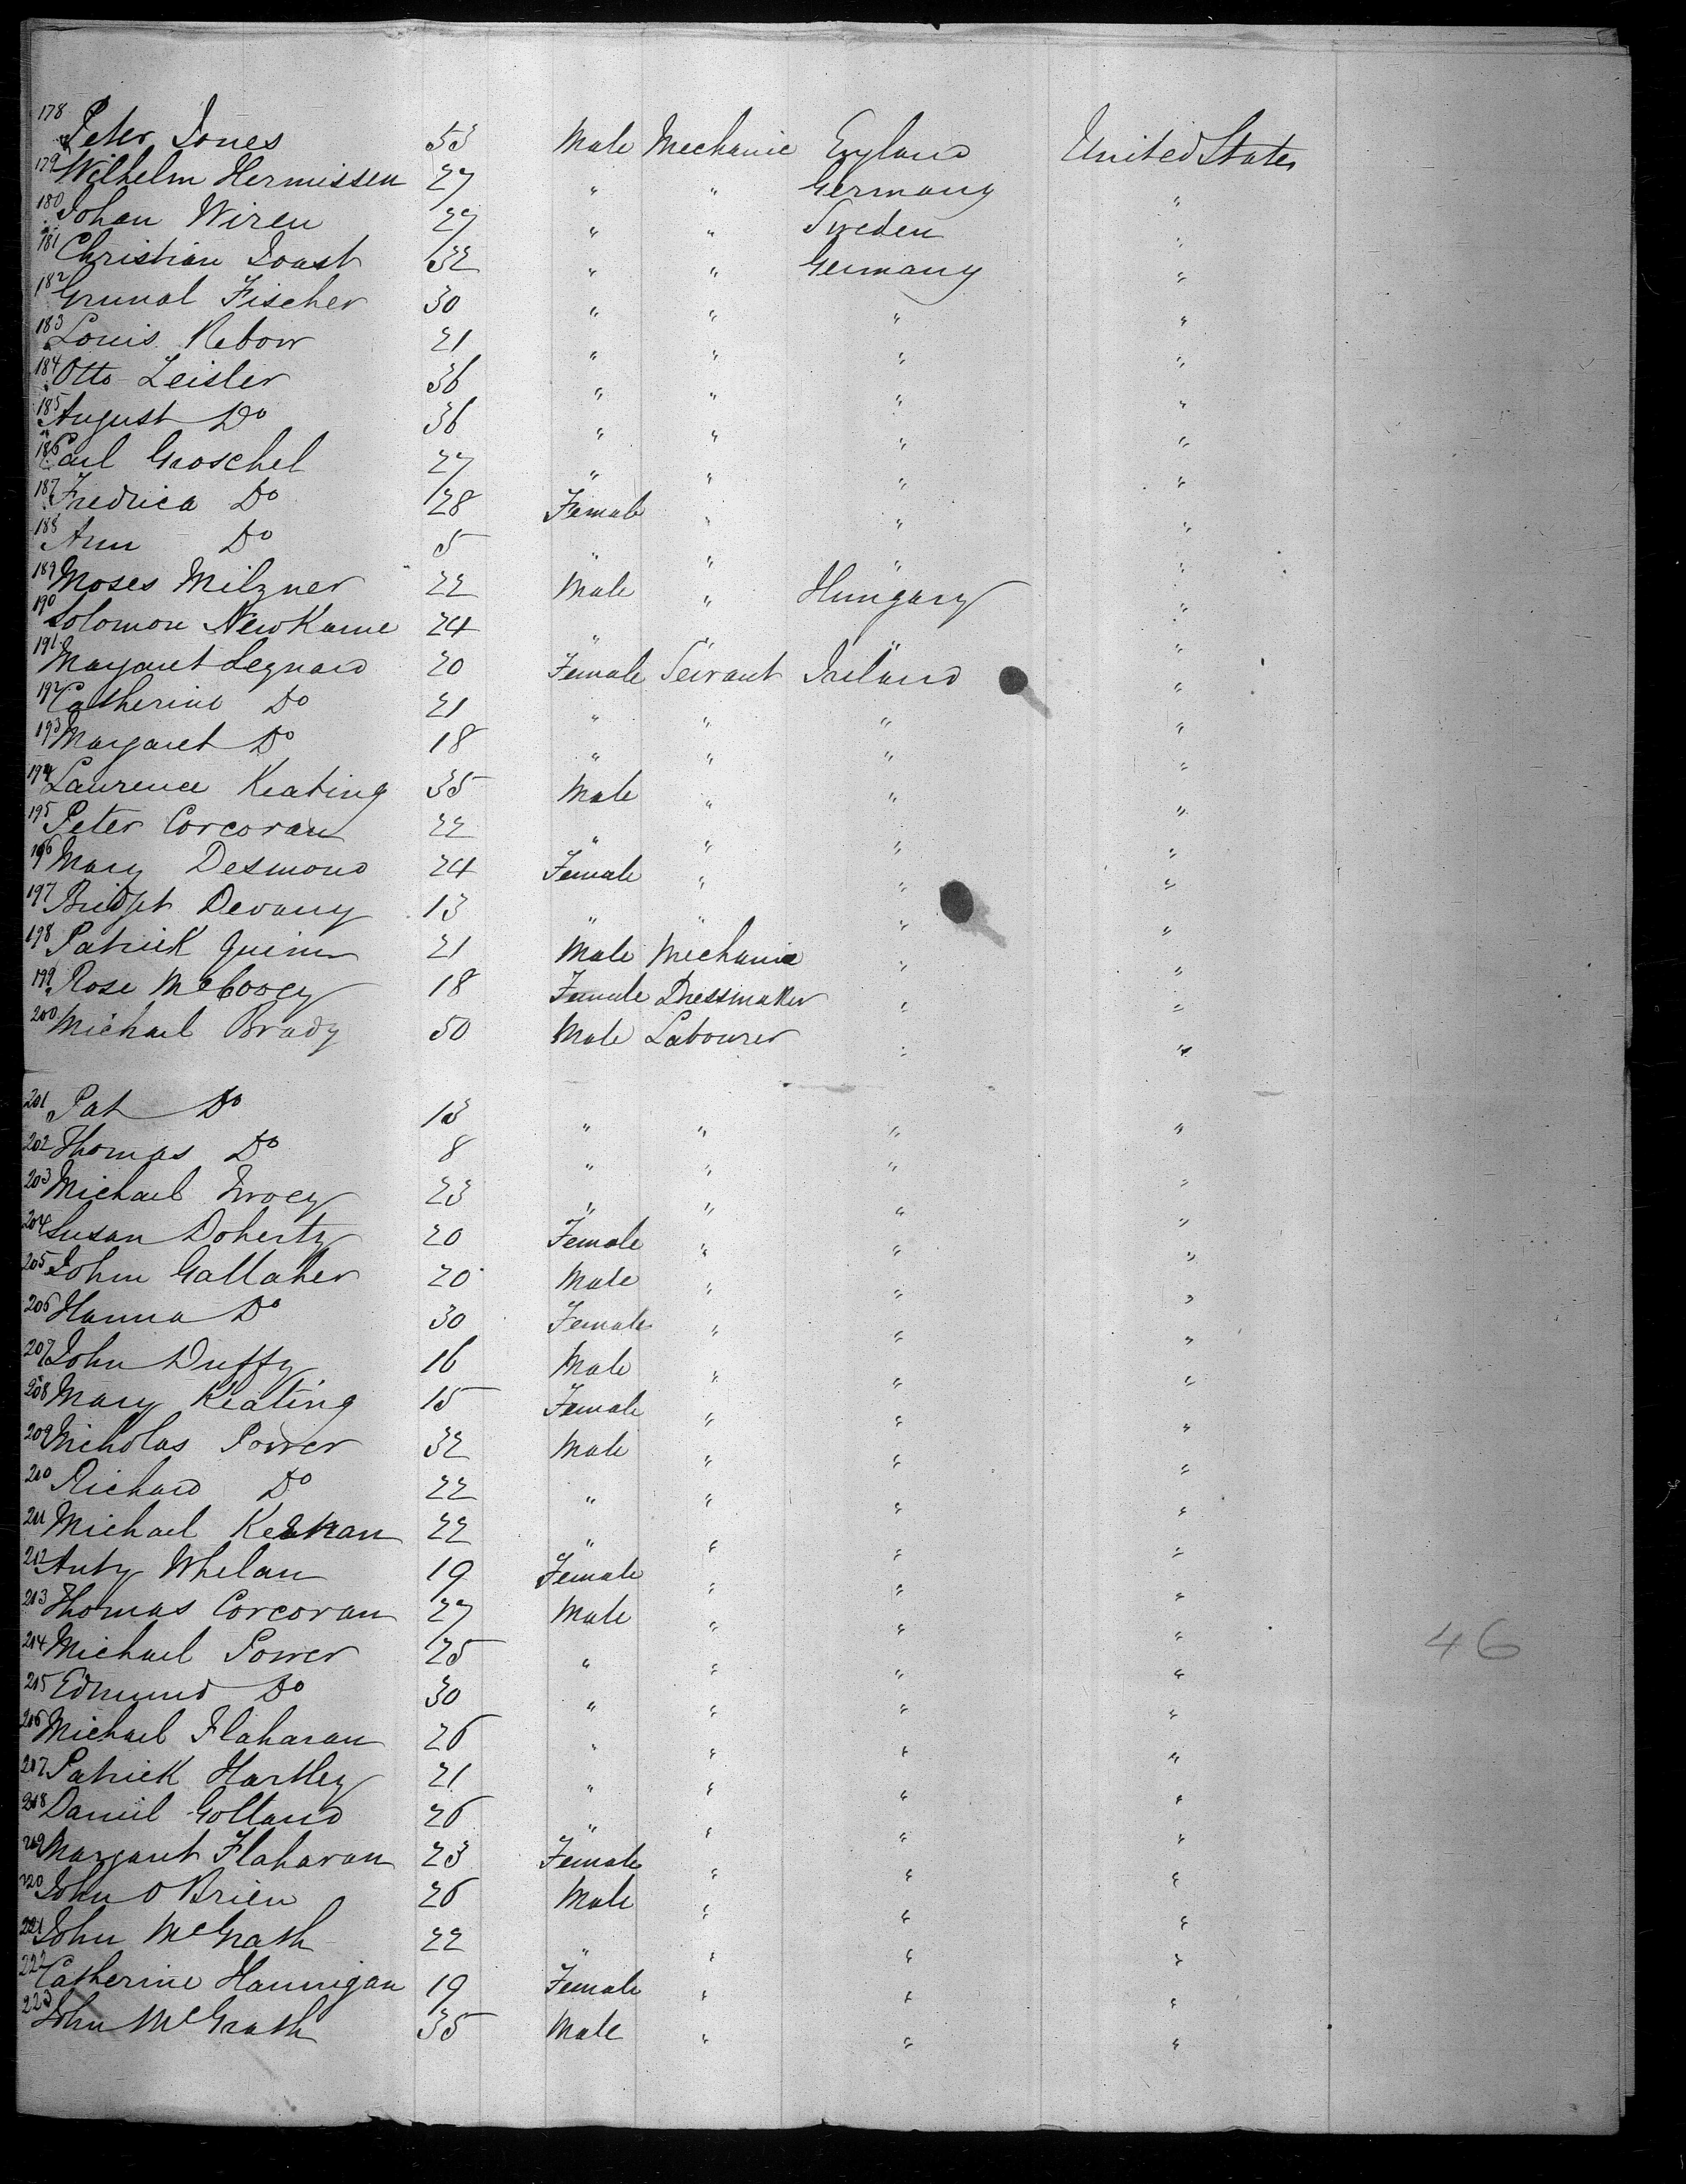 178 Peter Jones 53 Male Mechanic England United States
179 Wilhelm Hermissen 27 " " Germany "
180 Johan Wiren 27 " " Sweden "
181 Christian Joast 32 " " Germany "
182 Grunal Fischer 30 " " " "
183 Louis Rebow 21 " " " "
184 Otto Zeisler 36 " " " "
185 August Do 36 " " " "
186 Carl Groschel 27 " " " "
187 Fredrica Do 28 Female " " "
188 Ann Do 5 " " " "
189 Moses Milzner 22 Male " Hungary "
190 Solomon NewKame 24 " " " "
191 Margaret Legnard 20 Female Servant Ireland "
192 Catherine Do 21 " " " "
193 Margaret Do 18 " " " "
194 Laurence Keating 35 Male " " "
195 Peter Corcoran 22 " " " "
196 Mary Desmond 24 Female " " "
197 Bridget Devany 13 " " " "
198 Patrick Quinn 21 Male Mechanic " "
199 Rose 18 Female Dressmaker " "
200 Michael Brady 50 Male Labourer " "
201 Pat Do 13 " " " "
202 Thomas Do 8 " " " "
203 Michael 23 " " " "
204 Susan Doherty 20 Female " " "
205 John Gallaher 20 Male " " "
206 Hanna Do 30 Female " " "
207 John Duffy 16 Male " " "
208 Mary Keating 15 Female " " "
209 Nicholas Power 32 Male " " "
210 Richard Do 22 " " " "
211 Michael 22 " " " "
212 Anty Whelan 19 Female " " "
213 Thomas Corcoran 27 Male " " "
214 Michael Power 25 " " " " 46
215 Edmund Do 30 " " " "
216 Michael Flaharan 26 " " " "
217 Patrick Hartley 21 " " " "
218 Daniel Golland 26 " " " "
219 Margaret Flaharan 23 Female " " "
220 John O Brien 26 Male " " "
221 John McGrath 22 " " " "
222 Catherine Hannigan 19 Female " " "
223 John McGrath 35 Male " " "